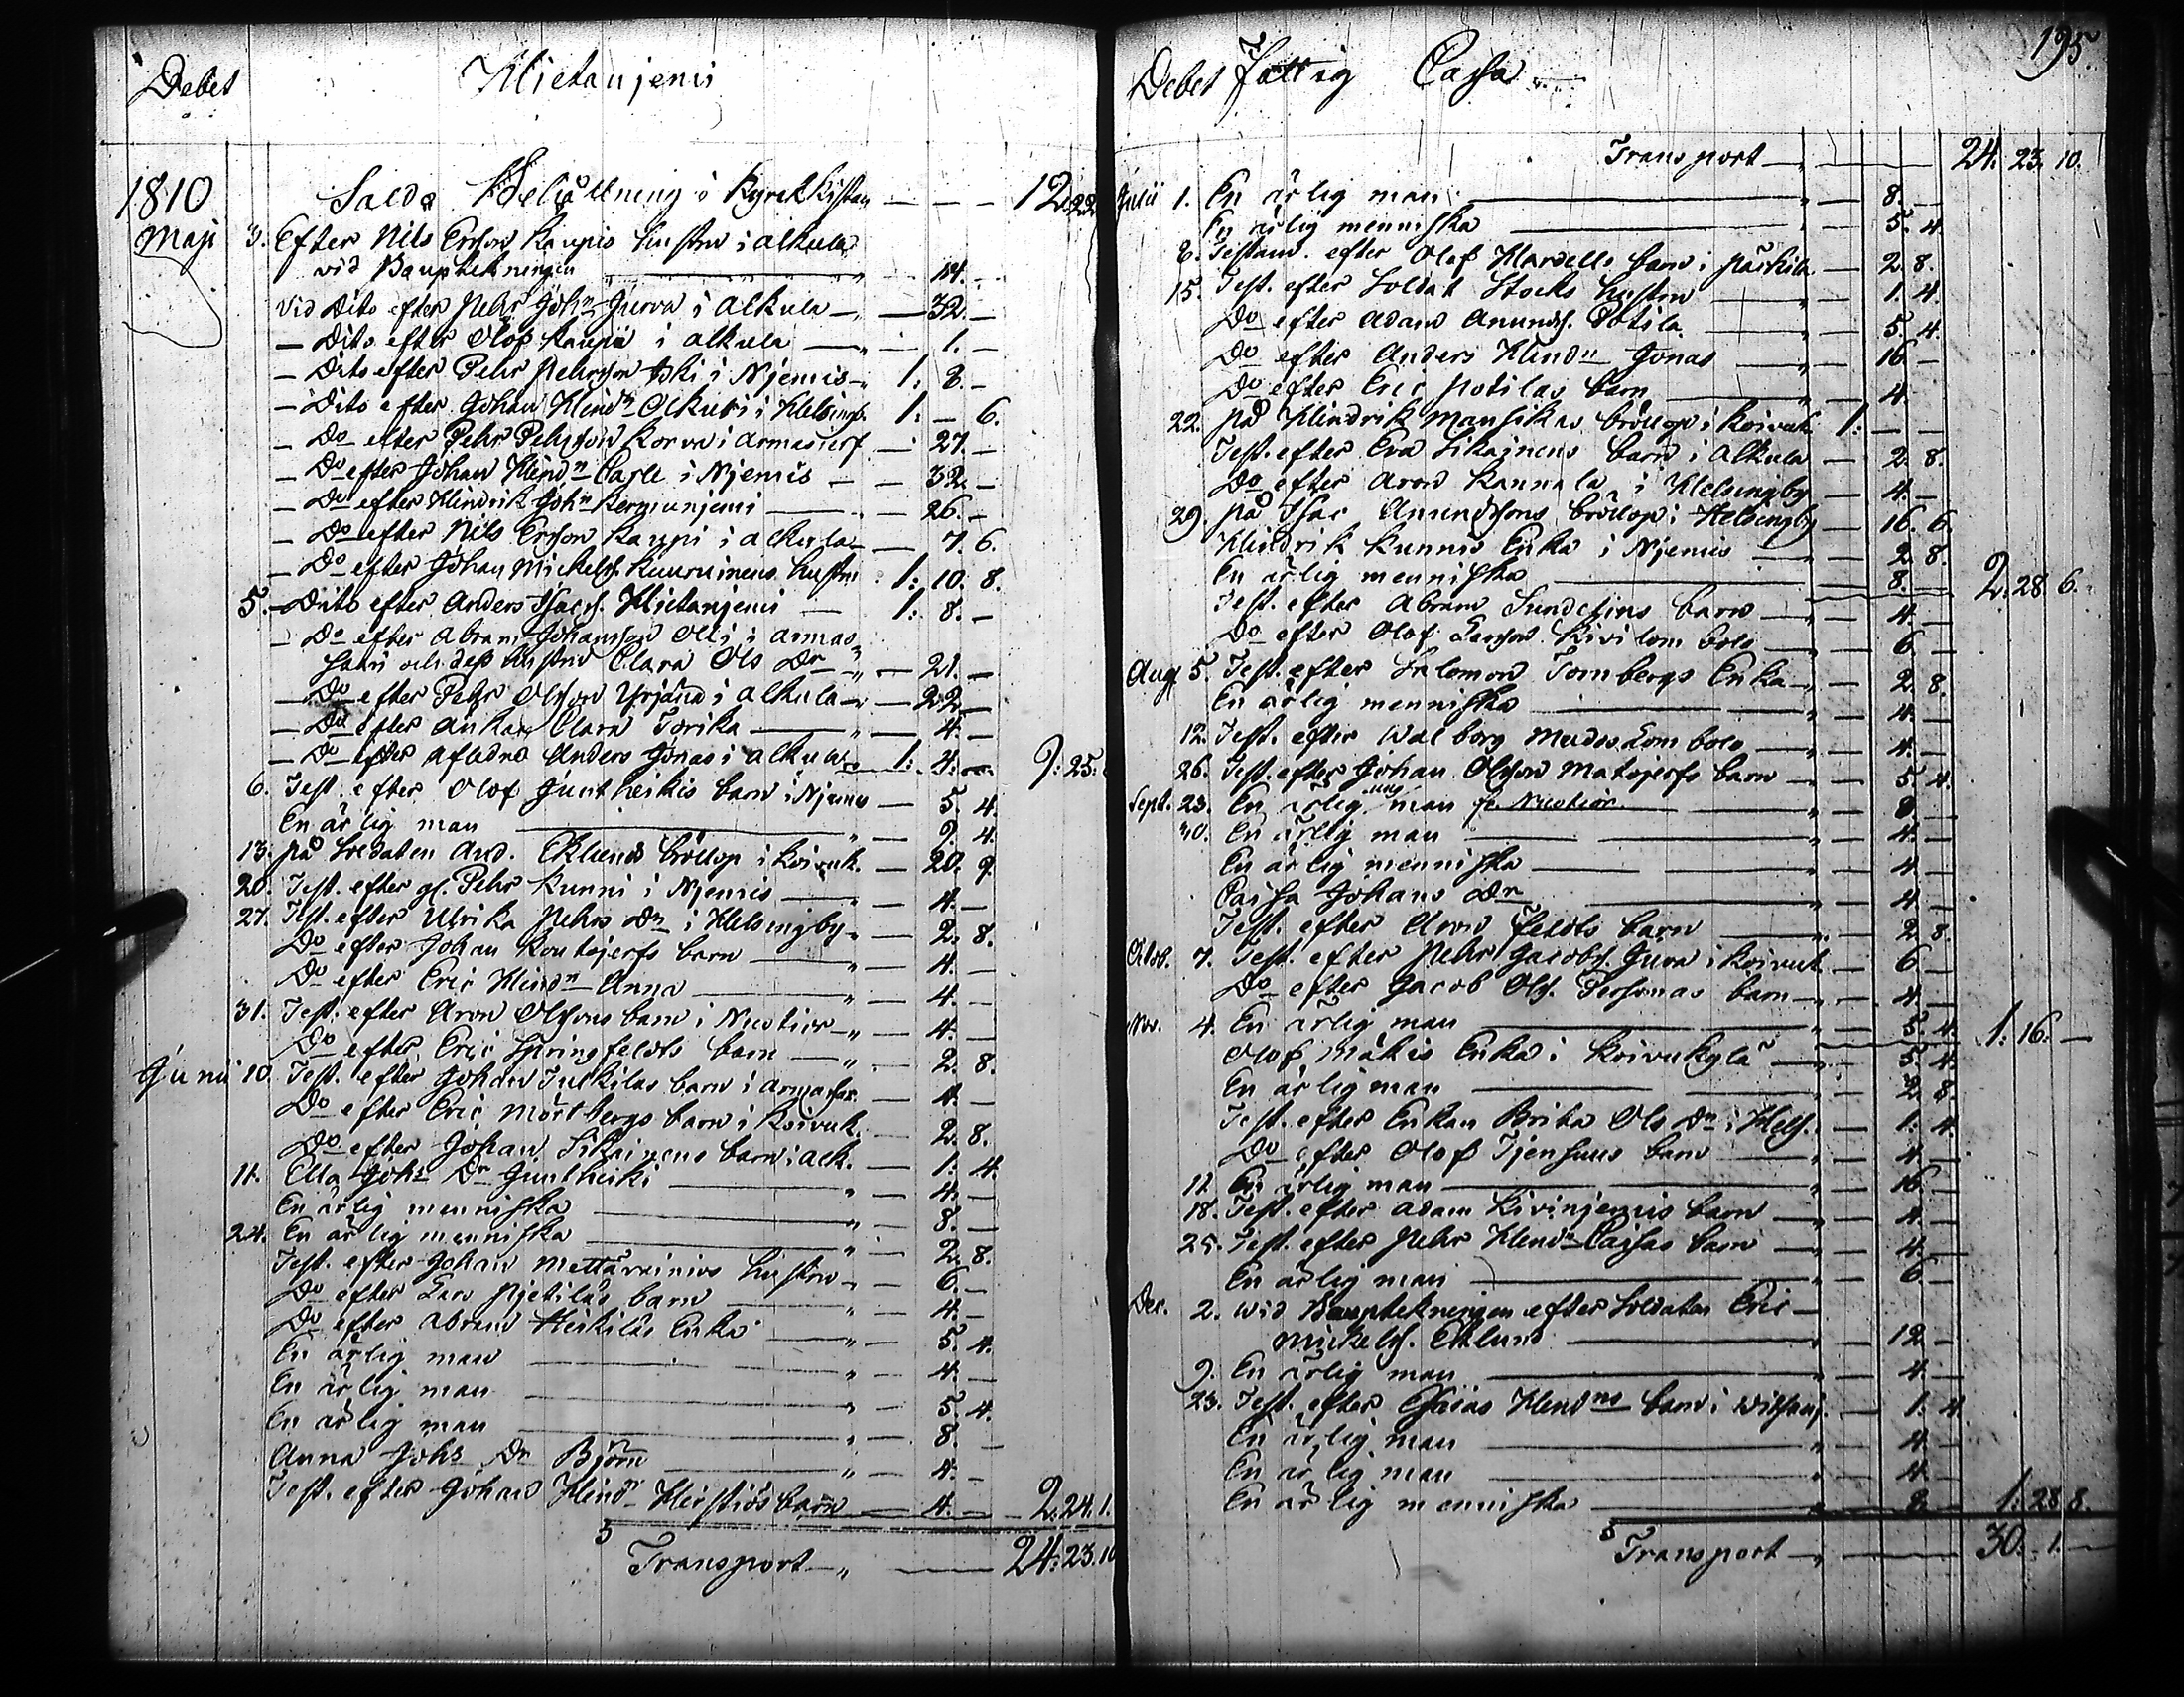 Debet Hietanjemi
1810 Saldo Behållning i Kyrckkistan — — — 12. 22
Maji 3. Efter Nils Ersson Kaupis hustru i Alkula
vid Bouptekningen — 14. —
Vid Dito efter Pehr John Jurva i Alkula — 32. —
— Dito efter Olof Kaupii i Alkula — 1. —
— Dito efter Pehr Pehrsson i Njemis — 1: 8. —
— Dito efter Johan Hindn i Helsingb. 1: — 6.
— Do efter Pehr Pehrsson Korva i Armasjerf — 27. —
— Do efter Johan Hindn i Njemis — 32. —
— Do efter Hindrik John Kermunjemi — 26. —
— Do efter Nils Ersson Kaupi i Alkula — 7. 6.
— Do efter Johan Mickels. Kuuruinens hustru 1: 10. 8.
5. — Dito efter Anders Isacs. Hietanjemi — 1: 8. —
— Do efter Abram Johansson Olli i Armas
saari och dess hustru Clara Ols Dr — 21. —
— Do efter Pehr Olsson Yrjänä i Alkula — 22. —
— Do efter Enkan Clara Torika — 4. —
— Do efter Afledne Anders Jonas i Alkula 1: 4. — 9: 25.
6. Test. efter Olof Juntheikis barn i Njemis — 5. 4.
En ärlig man — 9. 4.
13. på Soldaten And. Eklunds bröllop i Koivuk. — 20. 9.
20. Test. efter gl. Pehr Kunni i Njemis — 4. —
27. Test. efter Ulrika Pehrs Dr i Helsingby — 2. 8.
Do efter Johan Koutojerfs barn — 4. —
Do efter Eric Hindn Anna — 4. —
31. Test. efter Aron Olssons barn i — 4. —
Do efter Eric Springfeldts barn — 2. 8.
Junii 10. Test. efter Johan Juckilas barn i Armassar. — 4. —
Do efter Eric Mörtbergs barn i Koivuk. — 2. 8.
Do efter Johan Sikainens barn i Alk. — 1. 4.
11. Ella Johs Dr Juntheiki — 4. —
En ärlig menniska — 8. —
24. En ärlig menniska — 2. 8.
Test. efter Johan Mettävainios hustru — 6. —
Do efter Lars Pjetiläs barn — 4. —
Do efter Abram Heikiläs Enka — 5. 4.
En ärlig man — 4. —
En ärlig man — 5. 4.
En ärlig man — 8. —
Anna Johs Dr Björn — 4. —
Test. efter Johan Hindn barn — 4. — 2. 24. 1.
Transport — 24: 23. 10
Debet Fattig Cassa 195.
Transport — 24. 23. 10.
Julii 1. En ärlig man — 8. —
En ärlig menniska — 5. 4.
8. Testam. efter Olof Mardells barn i Päckila — 2. 8.
15. Test. efter Soldat Stocks hustru — 1. 4.
Do efter Adam Anunds. Potila — 5. 4.
Do efter Anders Hindn Jonas — 16. —
Do efter Eric Potilas barn — 4.
22. på Hindrik Mansikas bröllop i Koivuk. 1: — —
Test. efter Eva Sikainens barn i Alkula — 2. 8.
Do efter Aron Kannala i Helsingby — 4. —
29. på Isac Anundssons bröllop i Helsingby — 16. 6.
Hindrik Kunnis Enka i Njemis — 2. 8.
En ärlig menniska — 8. — 2. 28. 6.
Test. efter Abram Sundelins barn — 4. —
Do efter Olof Larsson Kivilombolo — 6. —
Aug. 5. Test. efter Salomon Tornbergs Enka — 2. 8.
En ärlig menniska — 4. —
12. Test. efter Walborg Mudoslombolo — 4. —
26. Test. efter Johan Olsson Matojerfs barn — 5. 4.
Sept. 23. En ärlig ung man — 8. —
30. En ärlig man — 4. —
En ärlig menniska — 4. —
Caisa Johans Dr — 4. —
Test. efter Aron Feldts barn — 2. 8.
Octob. 7. Test. efter Pehr Jacobs. Jurva i Koivuk. — 6 —
Do efter Jacob Ols. barn — 4. —
Nov. 4. En ärlig man — 5. 4. 1: 16. —
Olof Mäkis Enka i Koivukylä — 5. 4.
En ärlig man — 2. 8.
Test. efter Enkan Brita Ols Dr i Hels. — 1. 4.
Do efter Olof barn — 4. —
11. En ärlig man — 16. —
18. Test. efter Adam Kivinjemis barn — 4. —
25. Test. efter Pehr Hindn Caisas barn — 4. —
En ärlig man — 6. —
Dec. 2. wid Bouptekningen efter Soldaten Eric
Mickels. Eklund — 12 —
9. En ärlig man — 4. —
23. Test. efter Esaias Hindns barn i — 1. 4.
En ärlig man — 4. —
En ärlig man — 4. —
En ärlig menniska — 2. — 1: 28. 8.
Transport — 30. 1. —